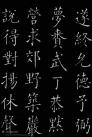 遂終允德予弼
夢賚武丁恭默
營求郊野築巖
說得對揚休聲